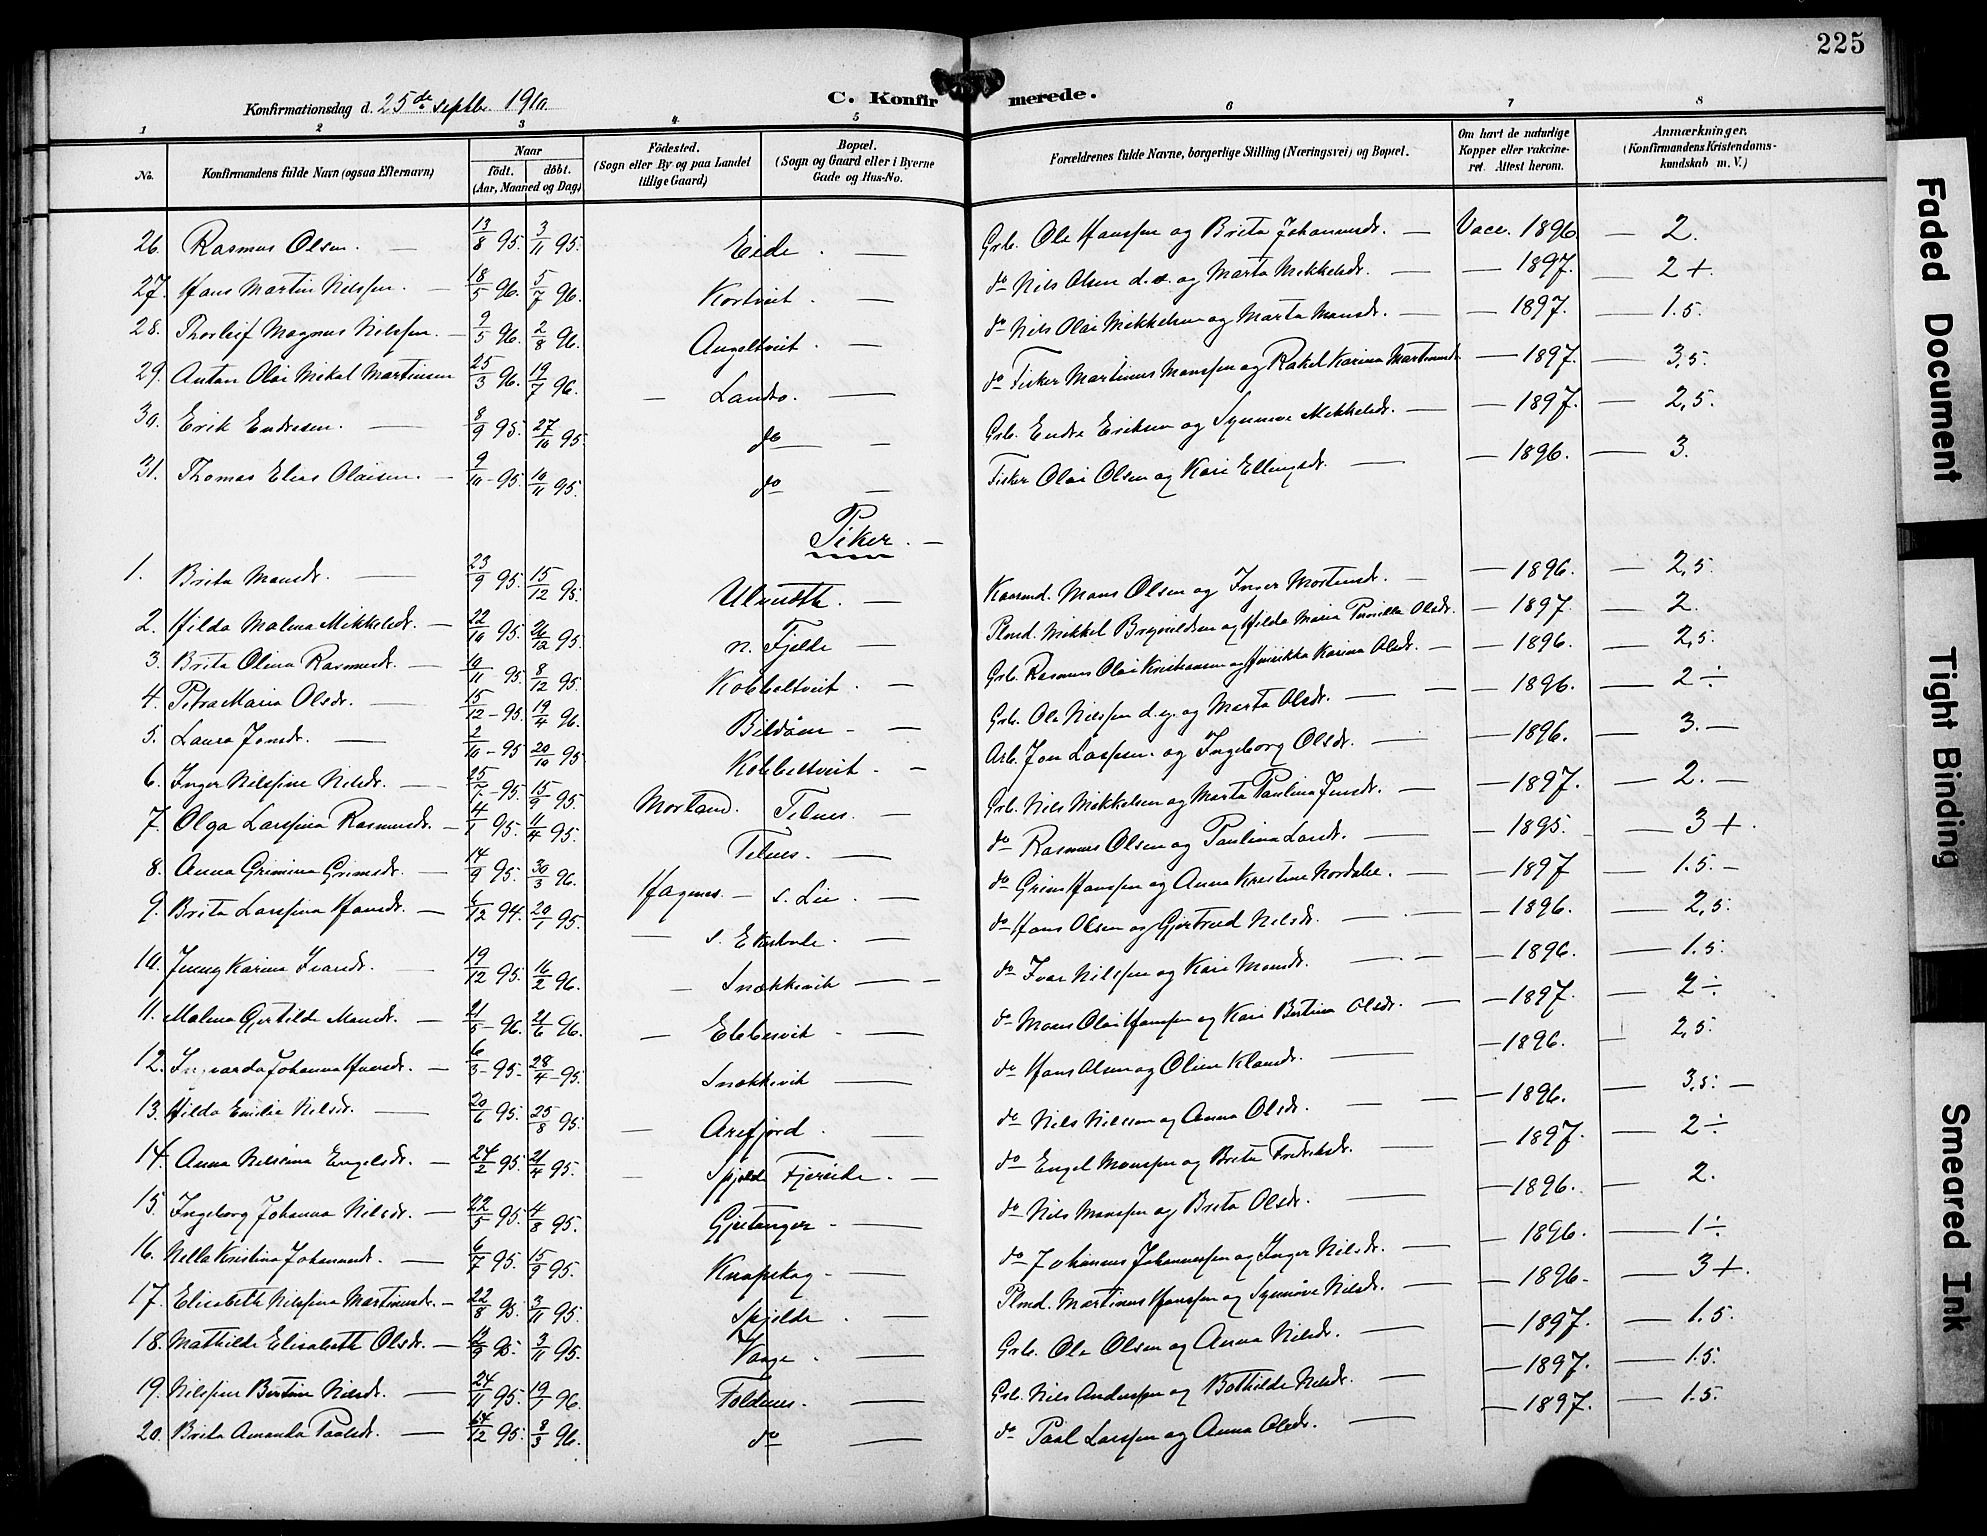 225
Konfirmationsdag d. 25de septbr. 1910
C. Konfirmerede.
1 2 3 4 5 6 7 8
No. Konfirmandens fulde Navn (ogsaa Efternavn) Naar födt. döbt. (Aar, Maaned og Dag) Födested. (Sogn eller By og paa Landet tillige Gaard) Bopæl. (Sogn og Gaard eller i Byerne Gade og Hus-No. Forældrenes fulde Navne, borgerlige Stilling (Næringsvei) og Bopæl. Om havt de naturlige Kopper eller vakcineret. Attest herom. Anmærkninger. (Konfirmandens Kristendomskundskab m. V.)
26. Rasmus Olsen. 13/8 95. 3/11 95. Eide. Grb. Ole Hanssen og Brita Johannesdr. Vacc. 1896. 2.
27. Hans Martin Nilssen. 18/5 96. 5/7 96. Kortveit. do Nils Olsen d.e. og Marta Mikkelsdr. 1897. 2+.
28. Thorleif Magnus Nilssen. 9/5 96. 2/8 96. Angeltveit. do Nils Olai Mikkelsen og Marta Monsdr. 1897. 1.5.
29. Anton Olai Mikal Martinsen 25/3 96. 19/7 96. Landro. do Fisker Martinus Monssen og Rakel Karina Martinusdr 1897. 3,5.
30. Erik Endresen. 8/9 95. 27/10 95. do Grb. Endre Eriksen og Synnøve Mikkelsdr. 1897. 2,5.
31. Thomas Elias Olaisen. 9/10 95. 10/11 95. do Fisker Olai Olsen og Kari Ellingsdr. 1896. 3.
Piker.
1. Brita Monsdr. 23/9 95. 15/12 95. Ulveseth. Kaarmd. Mons Olsen og Inger Mortensdr. 1896. 2,5.
2. Hilda Malena Mikkelsdr. 22/10 95. 26/12 95. n. Fjelde Plmd. Mikkel Brynildsen og Hilda Maria Pernilla Olsdr. 1897. 2.
3. Brita Olina Rasmusdr. 10/11 95. 8/12 95. Kobbeltveit. Grb. Rasmus Olai Kristiansen og Henrikka Karina Olsdr. 1896. 2,5.
4. Petra Maria Olsdr. 15/12 95. 19/4 96. Bildöen. Grb. Ole Nilssen d.y. og Marta Olsdr. 1896. 2÷
5. Laura Jonsdr. 2/10 95. 20/10 95. Kobbeltveit. Arb. Jon Larssen og Ingeborg Olsdr. 1896. 3.
6. Inger Nilssine Nilsdr. 25/7 95. 15/9 95. Morland. Telnes. Grb. Nils Mikkelsen og Marta Paulina Jensdr. 1897. 2.
7. Olga Larssina Rasmusdr. 4/1 95. 11/4 95. Telnes. do Rasmus Olsen og Paulina Larsdr. 1895. 3+.
8. Anna Grimina Grimsdr. 14/9 95. 30/3 96. Hagenes. s. Lie. do Grim Hanssen og Anna Kristine Nordalie. 1897 1.5.
9. Brita Larssina Hansdr. 6/12 94. 20/1 95. s. Ekerhole. do Hans Olsen og Gjertrud Nilsdr. 1896. 2,5.
10. Jenny Karina Ivarsdr. 19/12 95. 16/2 96. Snekkevik do Ivar Nilssen og Kari Monsdr. 1896. 1.5.
11. Malena Gjertilde Monsdr. 21/5 96. 21/6 96. Ebbesvik do Mons Olai Hanssen og Kari Bertina Olsdr. 1897. 2÷
12. Johanna Hansdr. 6/3 95. 28/4 95. Snekkevik do Hans Olsen og Oline Klausdr. 1896. 2,5.
13. Hilda Emilie Nilsdr. 20/6 95. 25/8 95. Arefjord. do Nils Nilssen og Anna Olsdr. 1896. 3,5.
14. Anna Nilssina Engelsdr. 24/2 95. 21/4 95. Spjelde Fjereide. do Engel Monssen og Brita Fredriksdr. 1897. 2÷
15. Ingeborg Johanna Nilsdr. 22/5 95. 4/8 95. Gjetanger do Nils Monssen og Brita Olsdr. 1896. 2.
16. Nella Kristina Johannesdr. 6/7 95. 15/9 95. Knapskog do Johannes Johannessen og Inger Nilsdr. 1896. 1÷
17. Elisabeth Nilssina Martinusdr. 22/8 95. 3/11 95. Spjelde Plmd. Martinus Hanssen og Synnøve Nilsdr. 1896. 3+.
18. Mathilde Elisabeth Olsdr. 95. 3/11 95. Vaage. Grb. Ole Olsen og Anna Nilsdr. 1897. 1.5.
19. Nilssine Bertine Nilsdr. 24/11 95. 19/1 96. Foldnes. Grb. Nils Anderssen og Bothilde Nilsdr. 1897. 1.5.
20. Brita Amanda Paalsdr. 14/12 95. 8/3 96. do do Paal Larssen og Anna Olsdr. 1897. 1.5.
Faded Document
Tight Binding
Smeared Ink